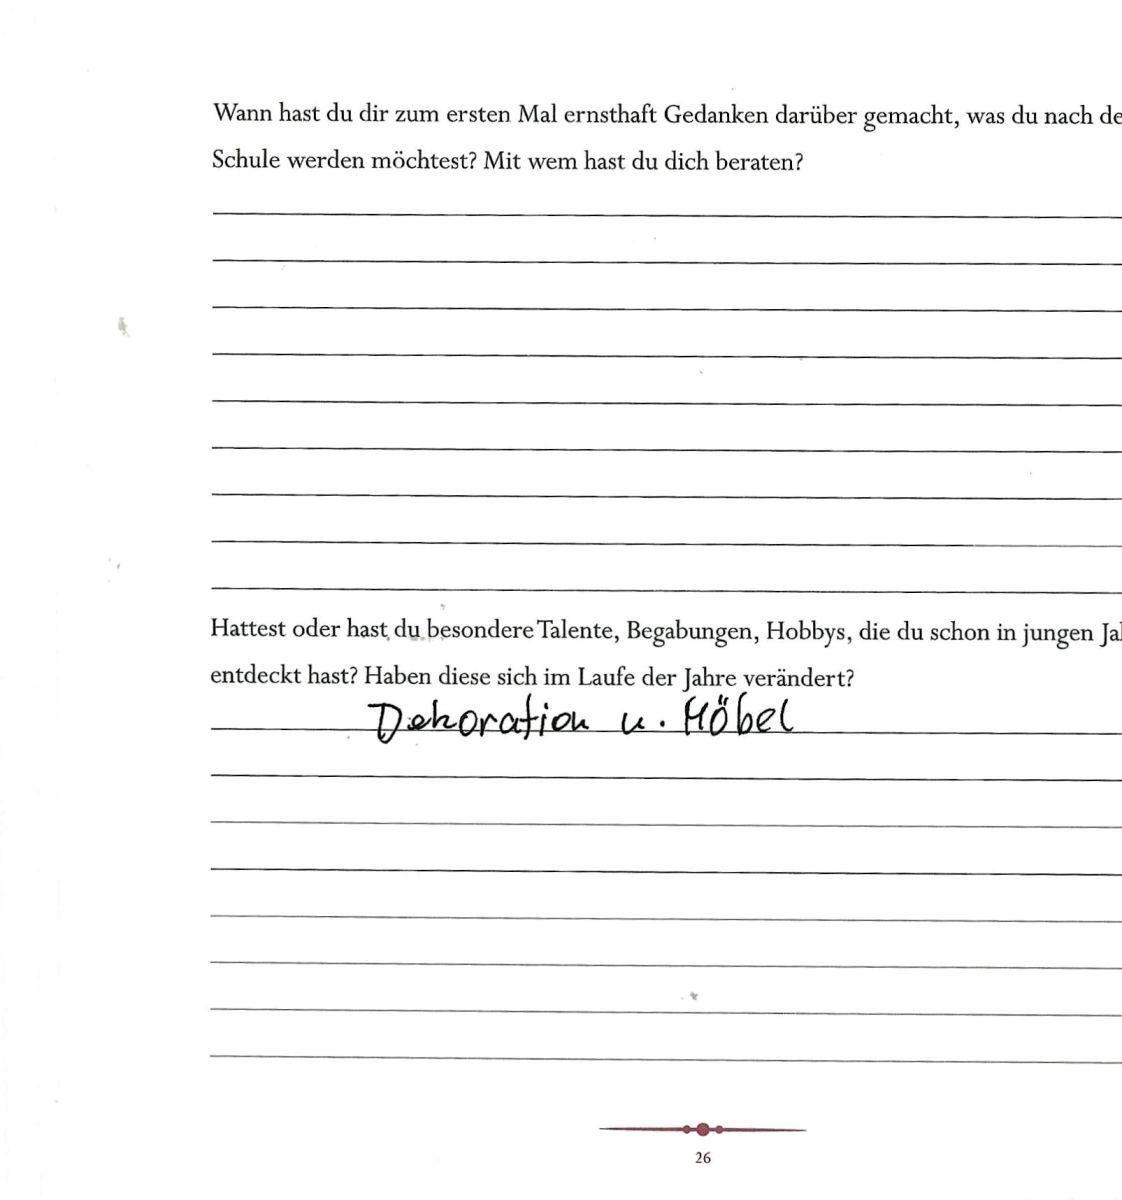 Wann hast du dir zum ersten Mal ernsthaft Gedanken darüber gemacht, was du nach de
Schule werden möchtest? Mit wem hast du dich beraten?
Hattest oder hast du besondere Talente, Begabungen, Hobbys, die du schon in jungen Ja
entdeckt hast? Haben diese sich im Laufe der Jahre verändert?
Dekoration u. Möbel
26